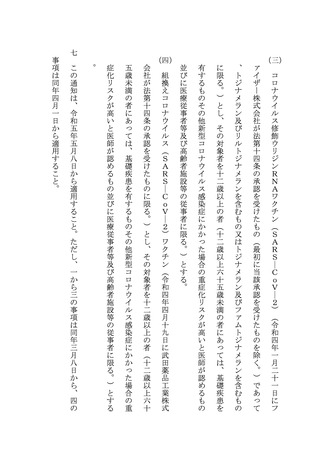 (三) コロナウイルス修飾ウリジンRNAワクチン(SARS―CoV―2)(令和四年一月二十一日にフ
ァイザー株式会社が法第十四条の承認を受けたもの(最初に当該承認を受けたものを除く。)であって
、トジナメラン及びリルトジナメランを含むもの又はトジナメラン及びファムトジナメランを含むもの
に限る。)とし、その対象者を十二歳以上の者(十二歳以上六十五歳未満の者にあっては、基礎疾患を
有するものその他新型コロナウイルス感染症にかかった場合の重症化リスクが高いと医師が認めるもの
並びに医療従事者等及び高齢者施設等の従事者に限る。)とする。
(四) 組換えコロナウイルス(SARS―CoV―2)ワクチン(令和四年四月十九日に武田薬品工業株式
会社が法第十四条の承認を受けたものに限る。)とし、その対象者を十二歳以上の者(十二歳以上六十
五歳未満の者にあっては、基礎疾患を有するものその他新型コロナウイルス感染症にかかった場合の重
症化リスクが高いと医師が認めるもの並びに医療従事者等及び高齢者施設等の従事者に限る。)とする
。
七 この通知は、令和五年五月八日から適用すること。ただし、一から三の事項は同年三月八日から、四の
事項は同年四月一日から適用すること。